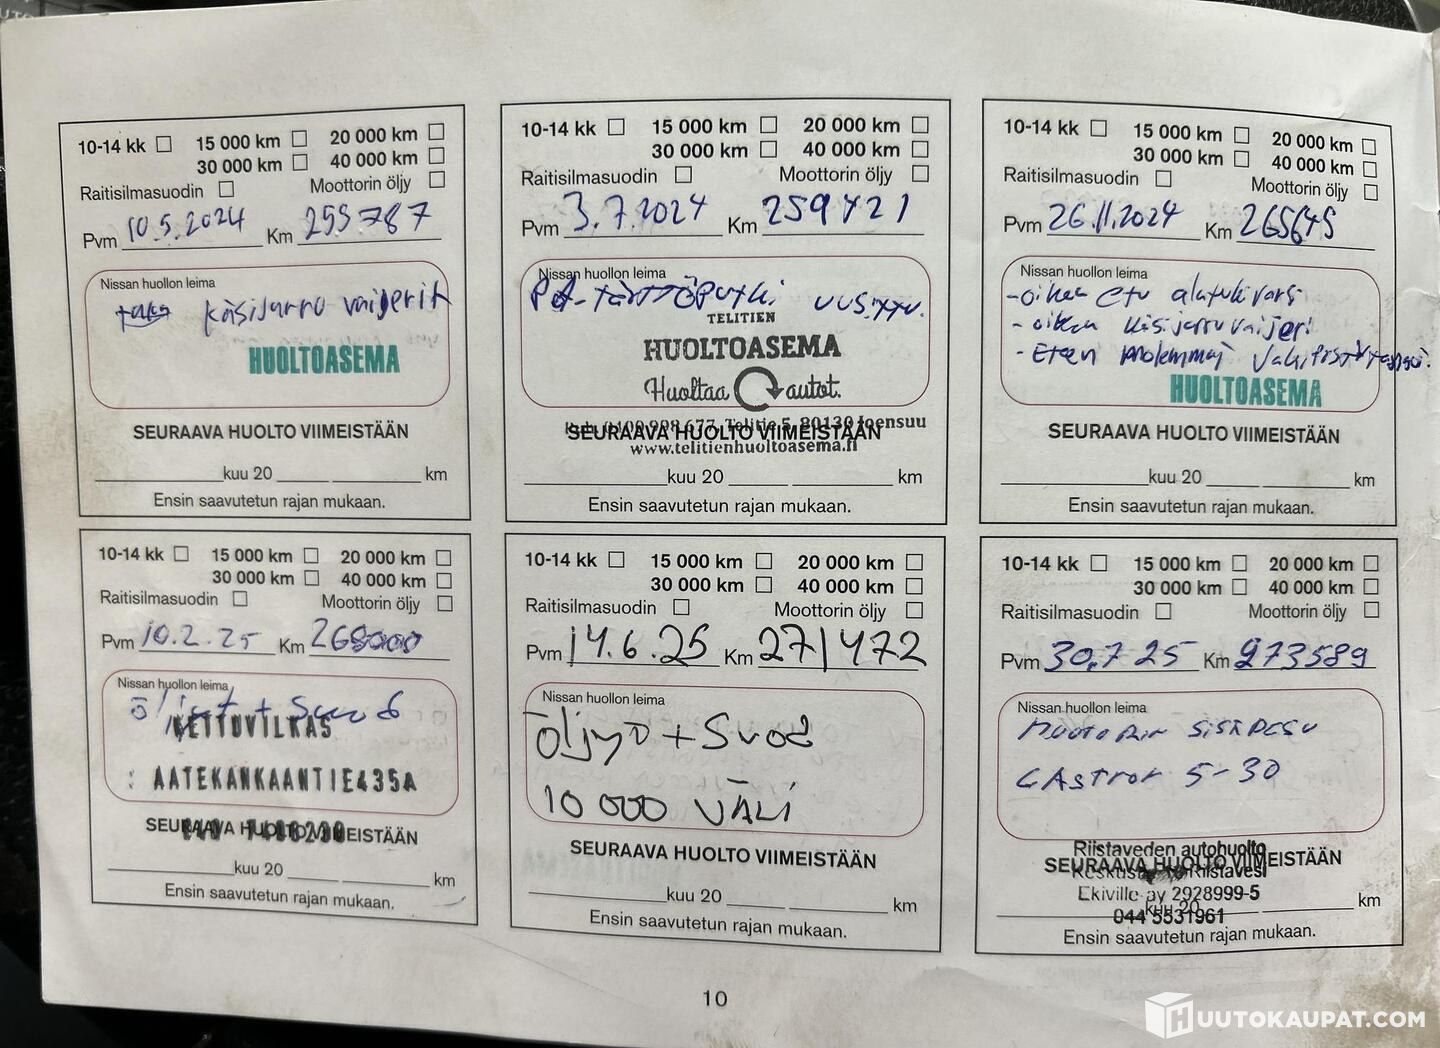 10-14 kk 15 000 km 20 000 km
30 000 km 40 000 km
Raitisilmasuodin Moottorin öljy
Pvm 10.5.2024 Km 255787
Nissan huollon leima
käsijarru vaijerit
HUOLTOASEMA
SEURAAVA HUOLTO VIIMEISTÄÄN
kuu 20 km
Ensin saavutetun rajan mukaan.
10-14 kk 15 000 km 20 000 km
30 000 km 40 000 km
Raitisilmasuodin Moottorin öljy
Pvm 3.7.2024 Km 259421
Nissan huollon leima
uusittu.
TELITIEN
HUOLTOASEMA
Huoltaa autot.
Telitie 5, 80130 Joensuu
SEURAAVA HUOLTO VIIMEISTÄÄN
www.telitienhuoltoasema.fi
kuu 20 km
Ensin saavutetun rajan mukaan.
10-14 kk 15 000 km 20 000 km
30 000 km 40 000 km
Raitisilmasuodin Moottorin öljy
Pvm 26.11.2024 Km 265645
Nissan huollon leima
- oikea etu alatukivarsi
- oikea käsijarruvaijeri
- Eteen molemmat
HUOLTOASEMA
SEURAAVA HUOLTO VIIMEISTÄÄN
kuu 20 km
Ensin saavutetun rajan mukaan.
10-14 kk 15 000 km 20 000 km
30 000 km 40 000 km
Raitisilmasuodin Moottorin öljy
Pvm 10.2.25 Km 268000
Nissan huollon leima
öljyt + Suod
KETTUVILKAS
AATEKANKAANTIE435A
SEURAAVA HUOLTO VIIMEISTÄÄN
kuu 20 km
Ensin saavutetun rajan mukaan.
10-14 kk 15 000 km 20 000 km
30 000 km 40 000 km
Raitisilmasuodin Moottorin öljy
Pvm 14.6.25 Km 271472
Nissan huollon leima
öljyt + Suod
10 000 VÄLI
SEURAAVA HUOLTO VIIMEISTÄÄN
kuu 20 km
Ensin saavutetun rajan mukaan.
10-14 kk 15 000 km 20 000 km
30 000 km 40 000 km
Raitisilmasuodin Moottorin öljy
Pvm 30.7 25 Km 273589
Nissan huollon leima
Moottorin SISÄPESU
CAstrol 5-30
Riistaveden autohuolto
SEURAAVA HUOLTO VIIMEISTÄÄN
Riistavesi
Ekiville ay 2928999-5
kuu 20 km
044 5531961
Ensin saavutetun rajan mukaan.
10
HUUTOKAUPAT.COM